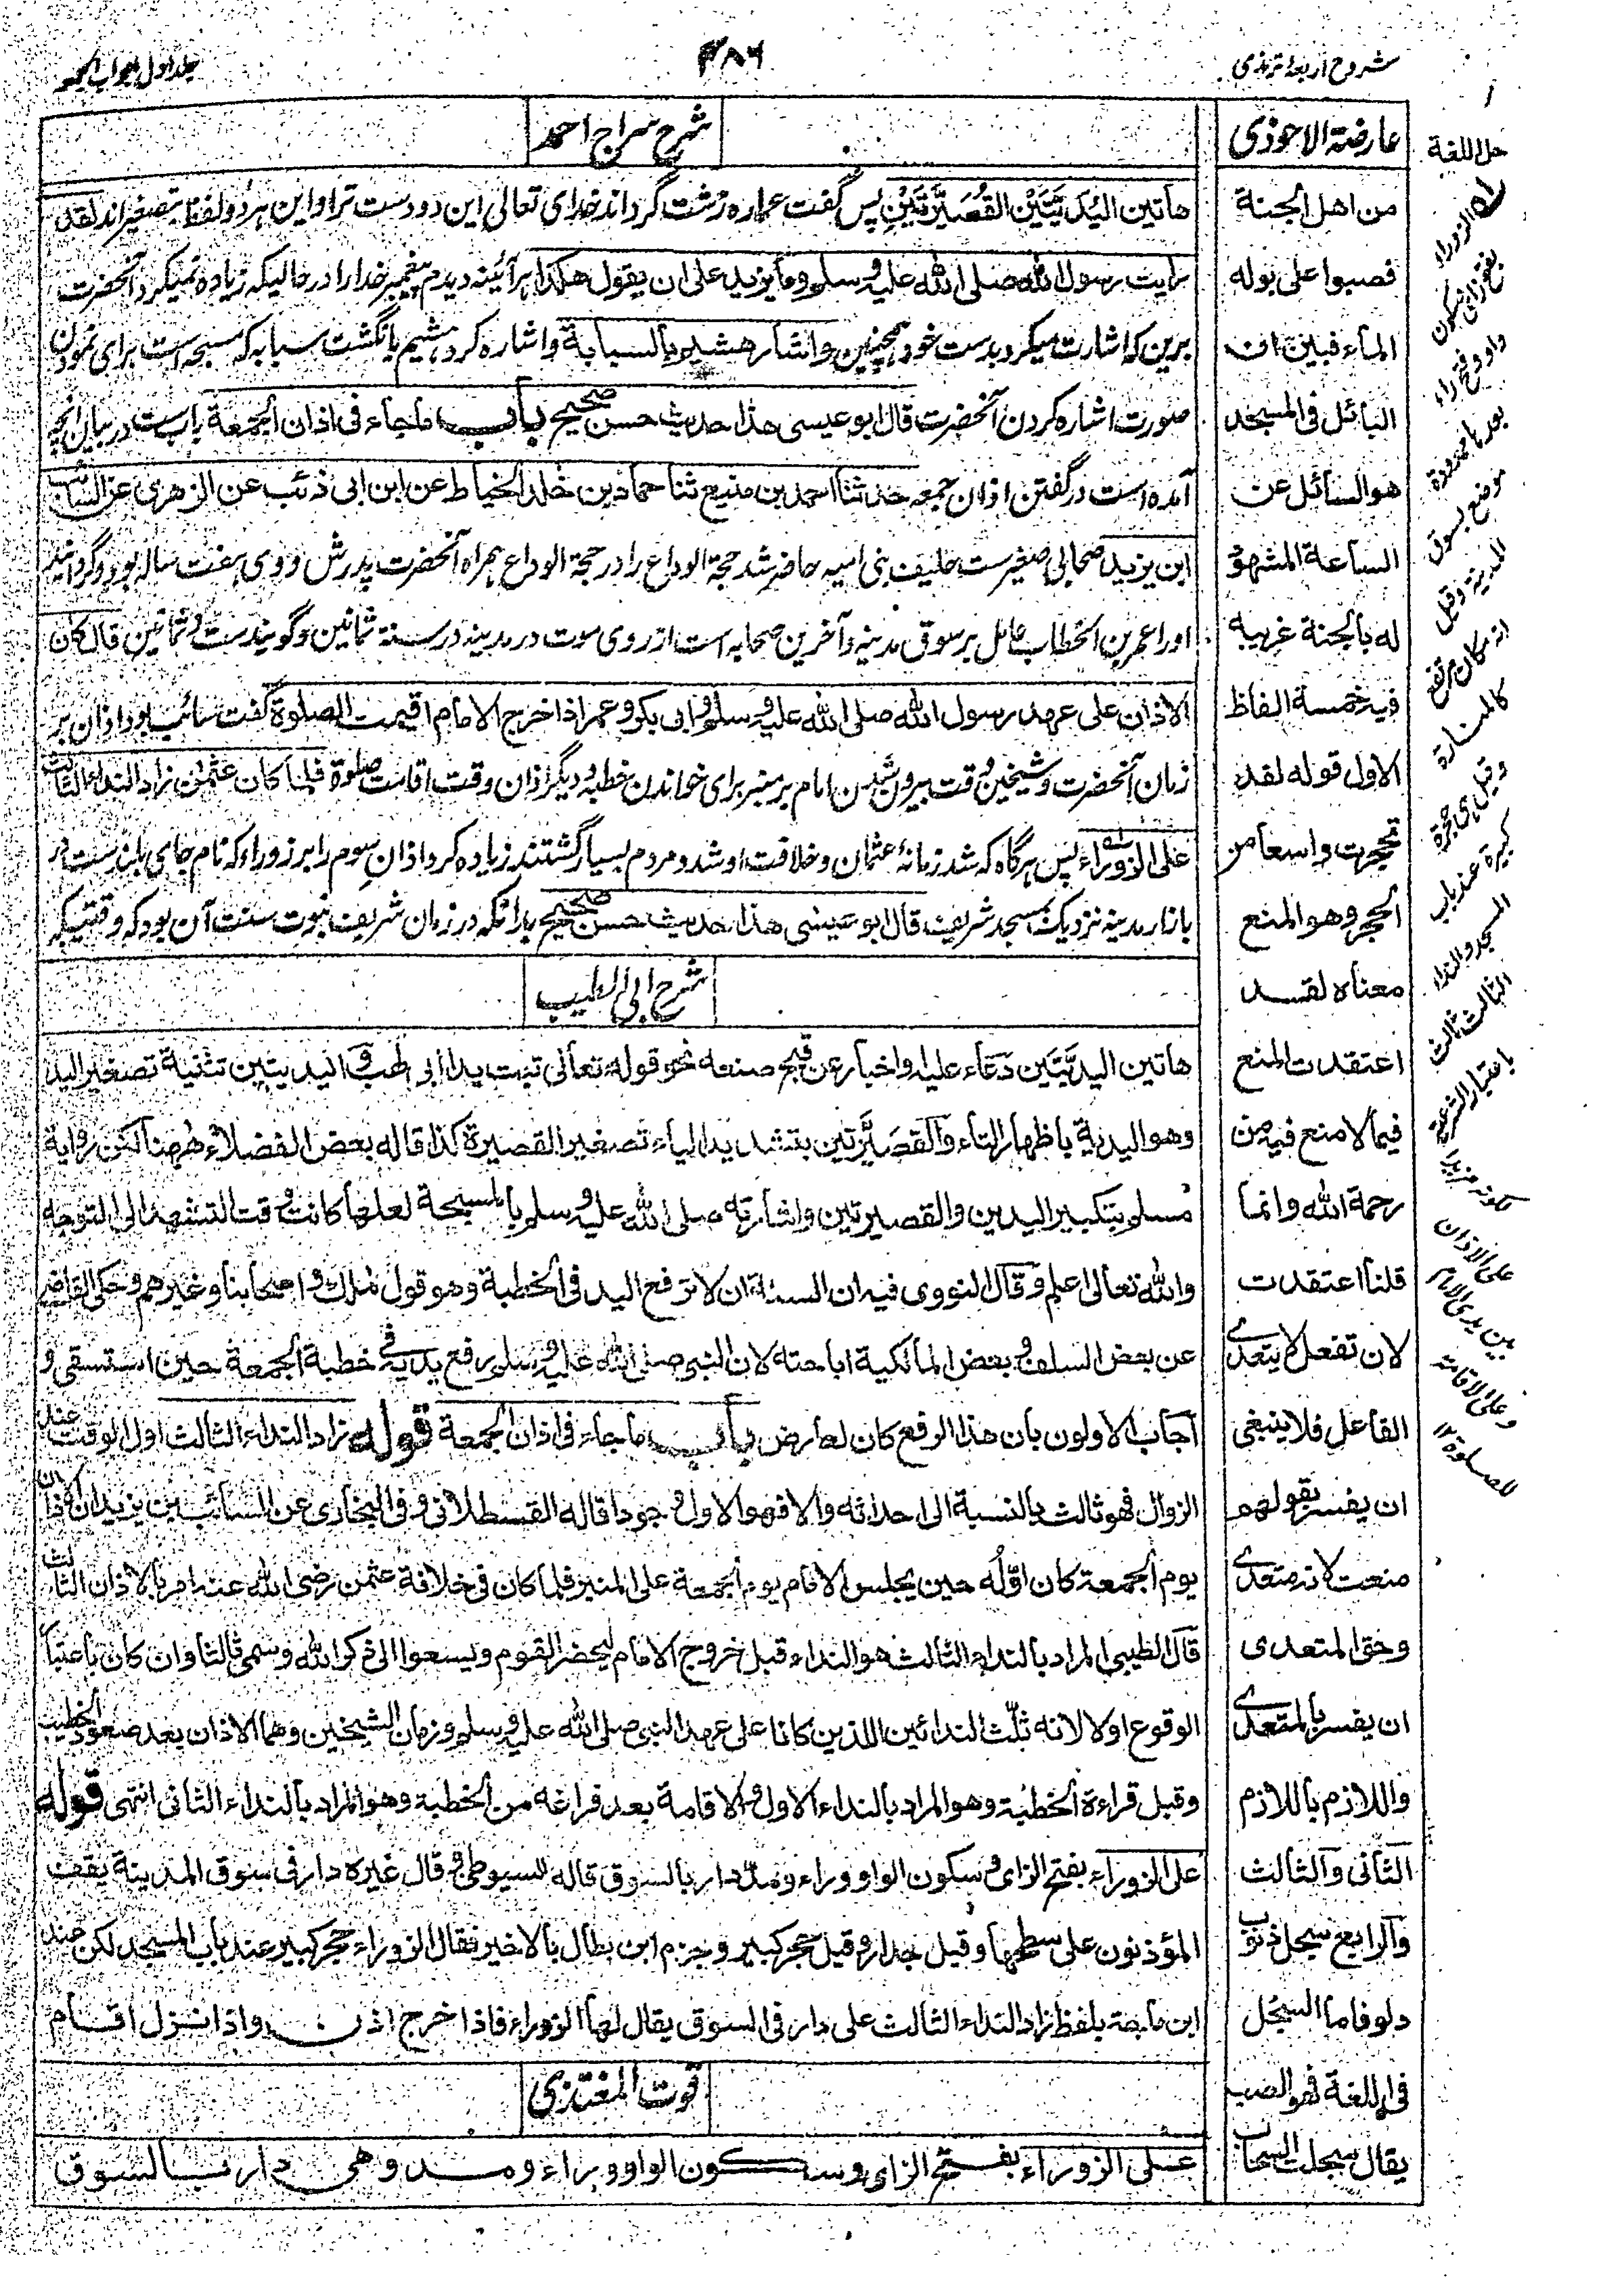 شروح اربعۂ ترمذی
۳۸۶
جلد اول ابواب الجمعہ
عارضة الاحوذى
من اهل الجنة
فصبوا على بوله
الماء فبين ان
البائل فى المسجد
هو السائل عن
الساعة المشهود
له بالجنة غريبه
فيه خمسة الفاظ
الاول قوله لقد
تحجرت واسعا من
الحجر وهو المنع
معناه لقد
اعتقدت المنع
فيما لا منع فيه من
رحمة الله وانما
قلنا اعتقدت
لان تفعل لا يتعدى
الفاعل فلا ينبغى
ان يفسر بقولهم
منعت لانه متعدى
وحق المتعدى
ان يفسر بالمتعدى
واللازم باللازم
الثانى والثالث
والرابع سجل ذنوب
دلو فاما السجل
فى اللغة فهو الصب
يقال سجلت السحاب
شرح سراج احمد
هاتين اليُدَيَّتَيْن القُصَيَّرَتَيْنِ پس گفت عماره زشت گرداند خدای تعالی این دو دست ترا و این هر دو لفظ بتصغیر اند لقد
رايت رسول الله صلى الله عليه وسلم وما يزيد على ان يقول هكذا هر آئینه دیدم پیغمبر خدا را در حالیکه زیاده نمیکرد آنحضرت
برین که اشارت میکرد بدست خود همچنین واشار هشيم بالسبابة و اشاره کرد هشیم بانگشت سبابه که مسبحه است برای نمودن
صورت اشاره کردن آنحضرت قال ابو عيسى هذا حديث حسن صحيح باب ما جاء فى اذان الجمعة باب ست در بیان انچه
آمده است در گفتن اذان جمعه حدثنا احمد بن منيع ثنا حماد بن خالد الخياط عن ابن ابى ذئب عن الزهرى عن السائب
ابن يزيد صحابی صغیر ست حلیف بنی امیه حاضر شد حجة الوداع را در حجة الوداع همراه آنحضرت پدرش و وی هفت ساله بود و گردانید
او را عمر بن الخطاب عامل بر سوق مدینه و آخرین صحابه است از روی موت در مدینه در سنة ثمانین و گویند ست و ثمانین قال كان
الاذان على عهد رسول الله صلى الله عليه وسلم وابى بكر وعمر اذا خرج الامام اقيمت الصلوة گفت سائب بود اذان بر
زمان آنحضرت و شیخین وقت بیرون شدن امام بر منبر برای خواندن خطبه و دیگر اذان وقت اقامت صلوة فلما كان عثمن زاد النداء الثالث
على الزوراء پس هرگاه که شد زمانۂ عثمان و خلافت او شد و مردم بسیار گشتند زیاده کرد اذان سوم را بر زوراء که نام جای بلند ست در
بازار مدینه نزدیک مسجد شریف قال ابو عيسى هذا حديث حسن صحيح بدانکه در زمان شریف نبوت سنت آن بود که وقتیکه
شرح ابى الطيب
هاتين اليديَّتَين دعاء عليه واخبار عن قبح صنعه نحو قوله تعالى تبت يدا ابى لهب واليديتين تثنية تصغير اليد
وهو اليدية باظهار التاء والقصيَّرتين بتشديد الياء تصغير القصيرة كذا قاله بعض الفضلاء ههنا لكن رواية
مسلم بتكبير اليدين والقصيرتين واشارته صلى الله عليه وسلم بالمسبحة لعلها كانت وقت التشهد الى التوجه
والله تعالى اعلم وقال النووى فيه ان السنة ان لا ترفع اليد فى الخطبة وهو قول ملك واصحابنا وغيرهم وحكى القاضى
عن بعض السلف وبعض المالكية اباحته لان النبى صلى الله عليه وسلم رفع يديه فى خطبة الجمعة حين استسقى و
اجاب الاولون بان هذا الرفع كان لعارض باب ما جاء فى اذان الجمعة قوله زاد النداء الثالث اول الوقت عند
الزوال فهو ثالث بالنسبة الى احداثه والا فهو الاول وجودا قاله القسطلانى وفى البخارى عن السائب بن يزيد ان الاذان
يوم الجمعة كان اوّلُه حين يجلس الامام يوم الجمعة على المنبر فلما كان فى خلافة عثمن رضى الله عنه امر بالاذان الثالث
قال الطيبى المراد بالنداء الثالث هو النداء قبل خروج الامام ليحضر القوم ويسعوا الى ذكر الله وسمى ثالثا وان كان باعتبار
الوقوع اولا لانه ثلّث الندائين اللذين كانا على عهد النبى صلى الله عليه وسلم وزمان الشيخين وهما الاذان بعد صعود الخطيب
وقبل قراءة الخطبة وهو المراد بالنداء الاول والاقامة بعد فراغه من الخطبة وهو المراد بالنداء الثانى انتهى قوله
على الزوراء بفتح الزاى وسكون الواو وراء ومدّ دار بالسوق قاله السيوطى وقال غيره دار فى سوق المدينة يقف
المؤذنون على سطحها وقيل جدار وقيل حجر كبير وجزم ابن بطال بالاخير فقال الزوراء حجر كبير عند باب المسجد لكن عند
ابن ماجة بلفظ زاد النداء الثالث على دار فى السوق يقال لها الزوراء فاذا خرج اذن واذا نزل اقام
قوت المغتذى
على الزوراء بفتح الزاى وسكون الواو وراء ومد وهى دار بالسوق
حل اللغة
الزوراء
بفتح زاى وسكون
واو وفتح راء
بعدها ممدودة
موضع بسوق
المدينة وقيل
انه مكان مرتفع
كالمنارة
وقيل هى حجرة
كبيرة عند باب
المسجد والنداء
الثالث ثالث
باعتبار الشرعية
لكونه مزيدا
على الاذان
بين يدى الامام
وعلى الاقامة
للصلوة ١٢